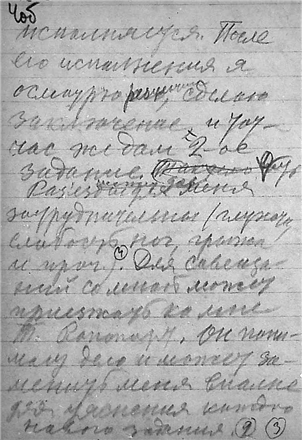 исполняться. После
его исполнения я
осмотрю сделаю
заключение и тот
час же дам 2-ое
задание.
Разъезжать меня
затруднительно (глухота,
слабость ног, грыжа
и проч.). Для совеща-
ний со мной может
приезжать ко мне
т. Он пони-
мает дело и может за-
менить меня вполне
для уяснения каждого
нового задания. 2 3